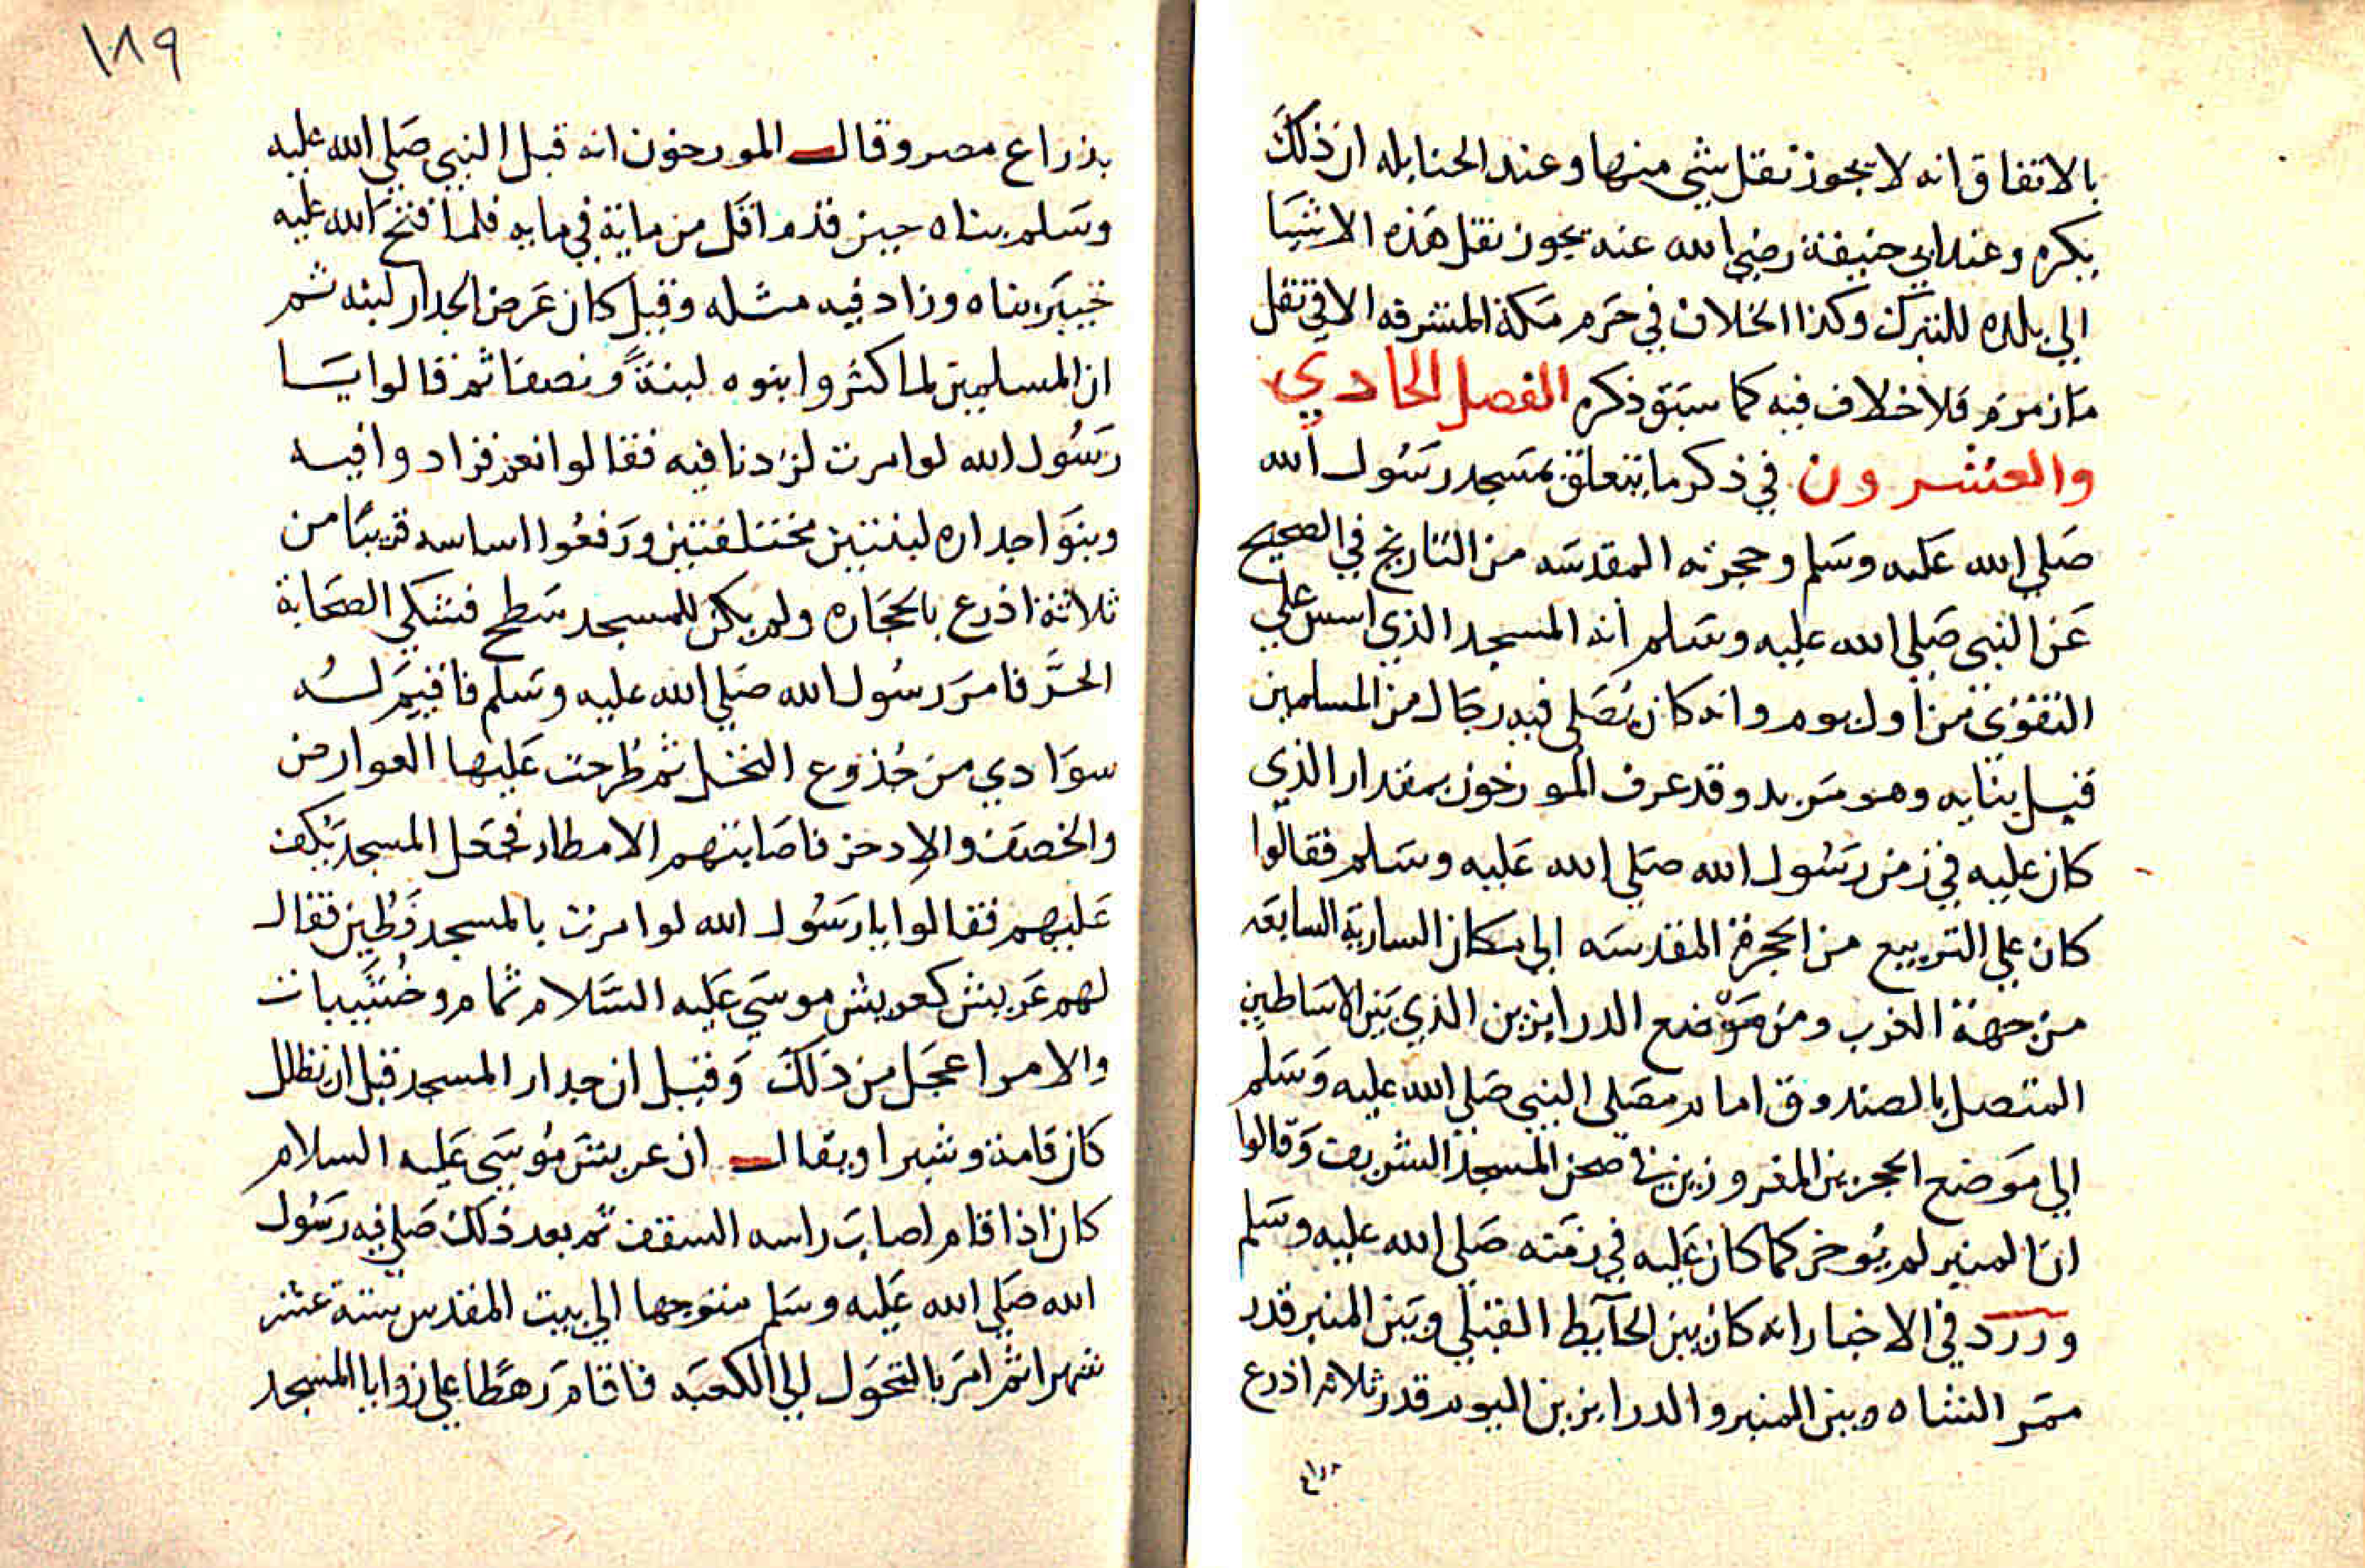 بالاتفاق انه لا يجوز نقل شي منها وعند الحنابله ان ذلك
يكره وعند ابي حنيفة رضي الله عنه يجوز نقل هذه الاشيا
الي بلده للتبرك وكذا الخلاف في حرم مكة المشرفه الا في نقل
ماز مزم فلا خلاف فيه كما سبق ذكره الفصل الحادي
والعشرون في ذكر ما يتعلق بمسجد رسول الله
صلي الله عليه وسلم وحجرته المقدسه من التاريخ في الصحيح
عن النبي صلي الله عليه وسلم انه المسجد الذي اسس علي
التقوي من اول يوم وانه كان يصلي فيه رجال من المسلمين
قبل بنايه وهو مربد وقد عرف المورخون بمقدار الذي
كان عليه في زمن رسول الله صلي الله عليه وسلم فقالوا
كان علي التربيع من الحجرة المقدسه الي مكان السارية السابعه
من جهة الغرب ومن موضع الدرابزين الذي بين الاساطين
المتصل بالصندوق امام مصلي النبي صلي الله عليه وسلم
الي موضع الحجرين المغروزين في صحن المسجد الشريف وقالوا
ان المنبر لم يوخر كما كان عليه في زمنه صلي الله عليه وسلم
وورد في الاخبار انه كان بين الحآيط القبلي وبين المنبر قدر
ممر الشاه وبين المنبر والدرابزين اليوم قدر ثلاثه اذرع
بذراع
١٨٩
بذراع مصر وقال المورخون انه قبل النبي صلي الله عليه
وسلم بناه حين قدم اقل من ماية في مايه فلما فتح الله عليه
خيبر بناه وزاد فيه مثله وقيل كان عرض الجدار لبنه ثم
ان المسلمين لما كثروا بنوه لبنة ونصفا ثم قالوا يا
رسول الله لو امرت لزدنا فيه فقالوا نعم فزادوا فيه
وبنوا جداره لبنتين مختلفتين ورفعوا اساسه قريبا من
ثلاثة اذرع بالحجاره ولم يكن للمسجد سطح فشكي الصحابة
الحر فامر رسول الله صلي الله عليه وسلم فاقيم له
سوادي من جذوع النخل ثم طرحت عليها العوارض
والخصف والإدخر فاصابتهم الامطار فجعل المسجد يكف
عليهم فقالوا يا رسول الله لو امرت بالمسجد فطين فقال
لهم عريش كعريش موسي عليه السلام ثمام وخشيبات
والامر اعجل من ذلك وقيل ان جدار المسجد قبل ان يظلل
كان قامة وشبرا ويقال ان عريش موسي عليه السلام
كان اذا قام اصاب راسه السقف ثم بعد ذلك صلي فيه رسول
الله صلي الله عليه وسلم متوجها الي بيت المقدس ستة عشر
شهرا ثم امر بالتحول الي الكعبه فاقام رهطا علي زوايا المسجد